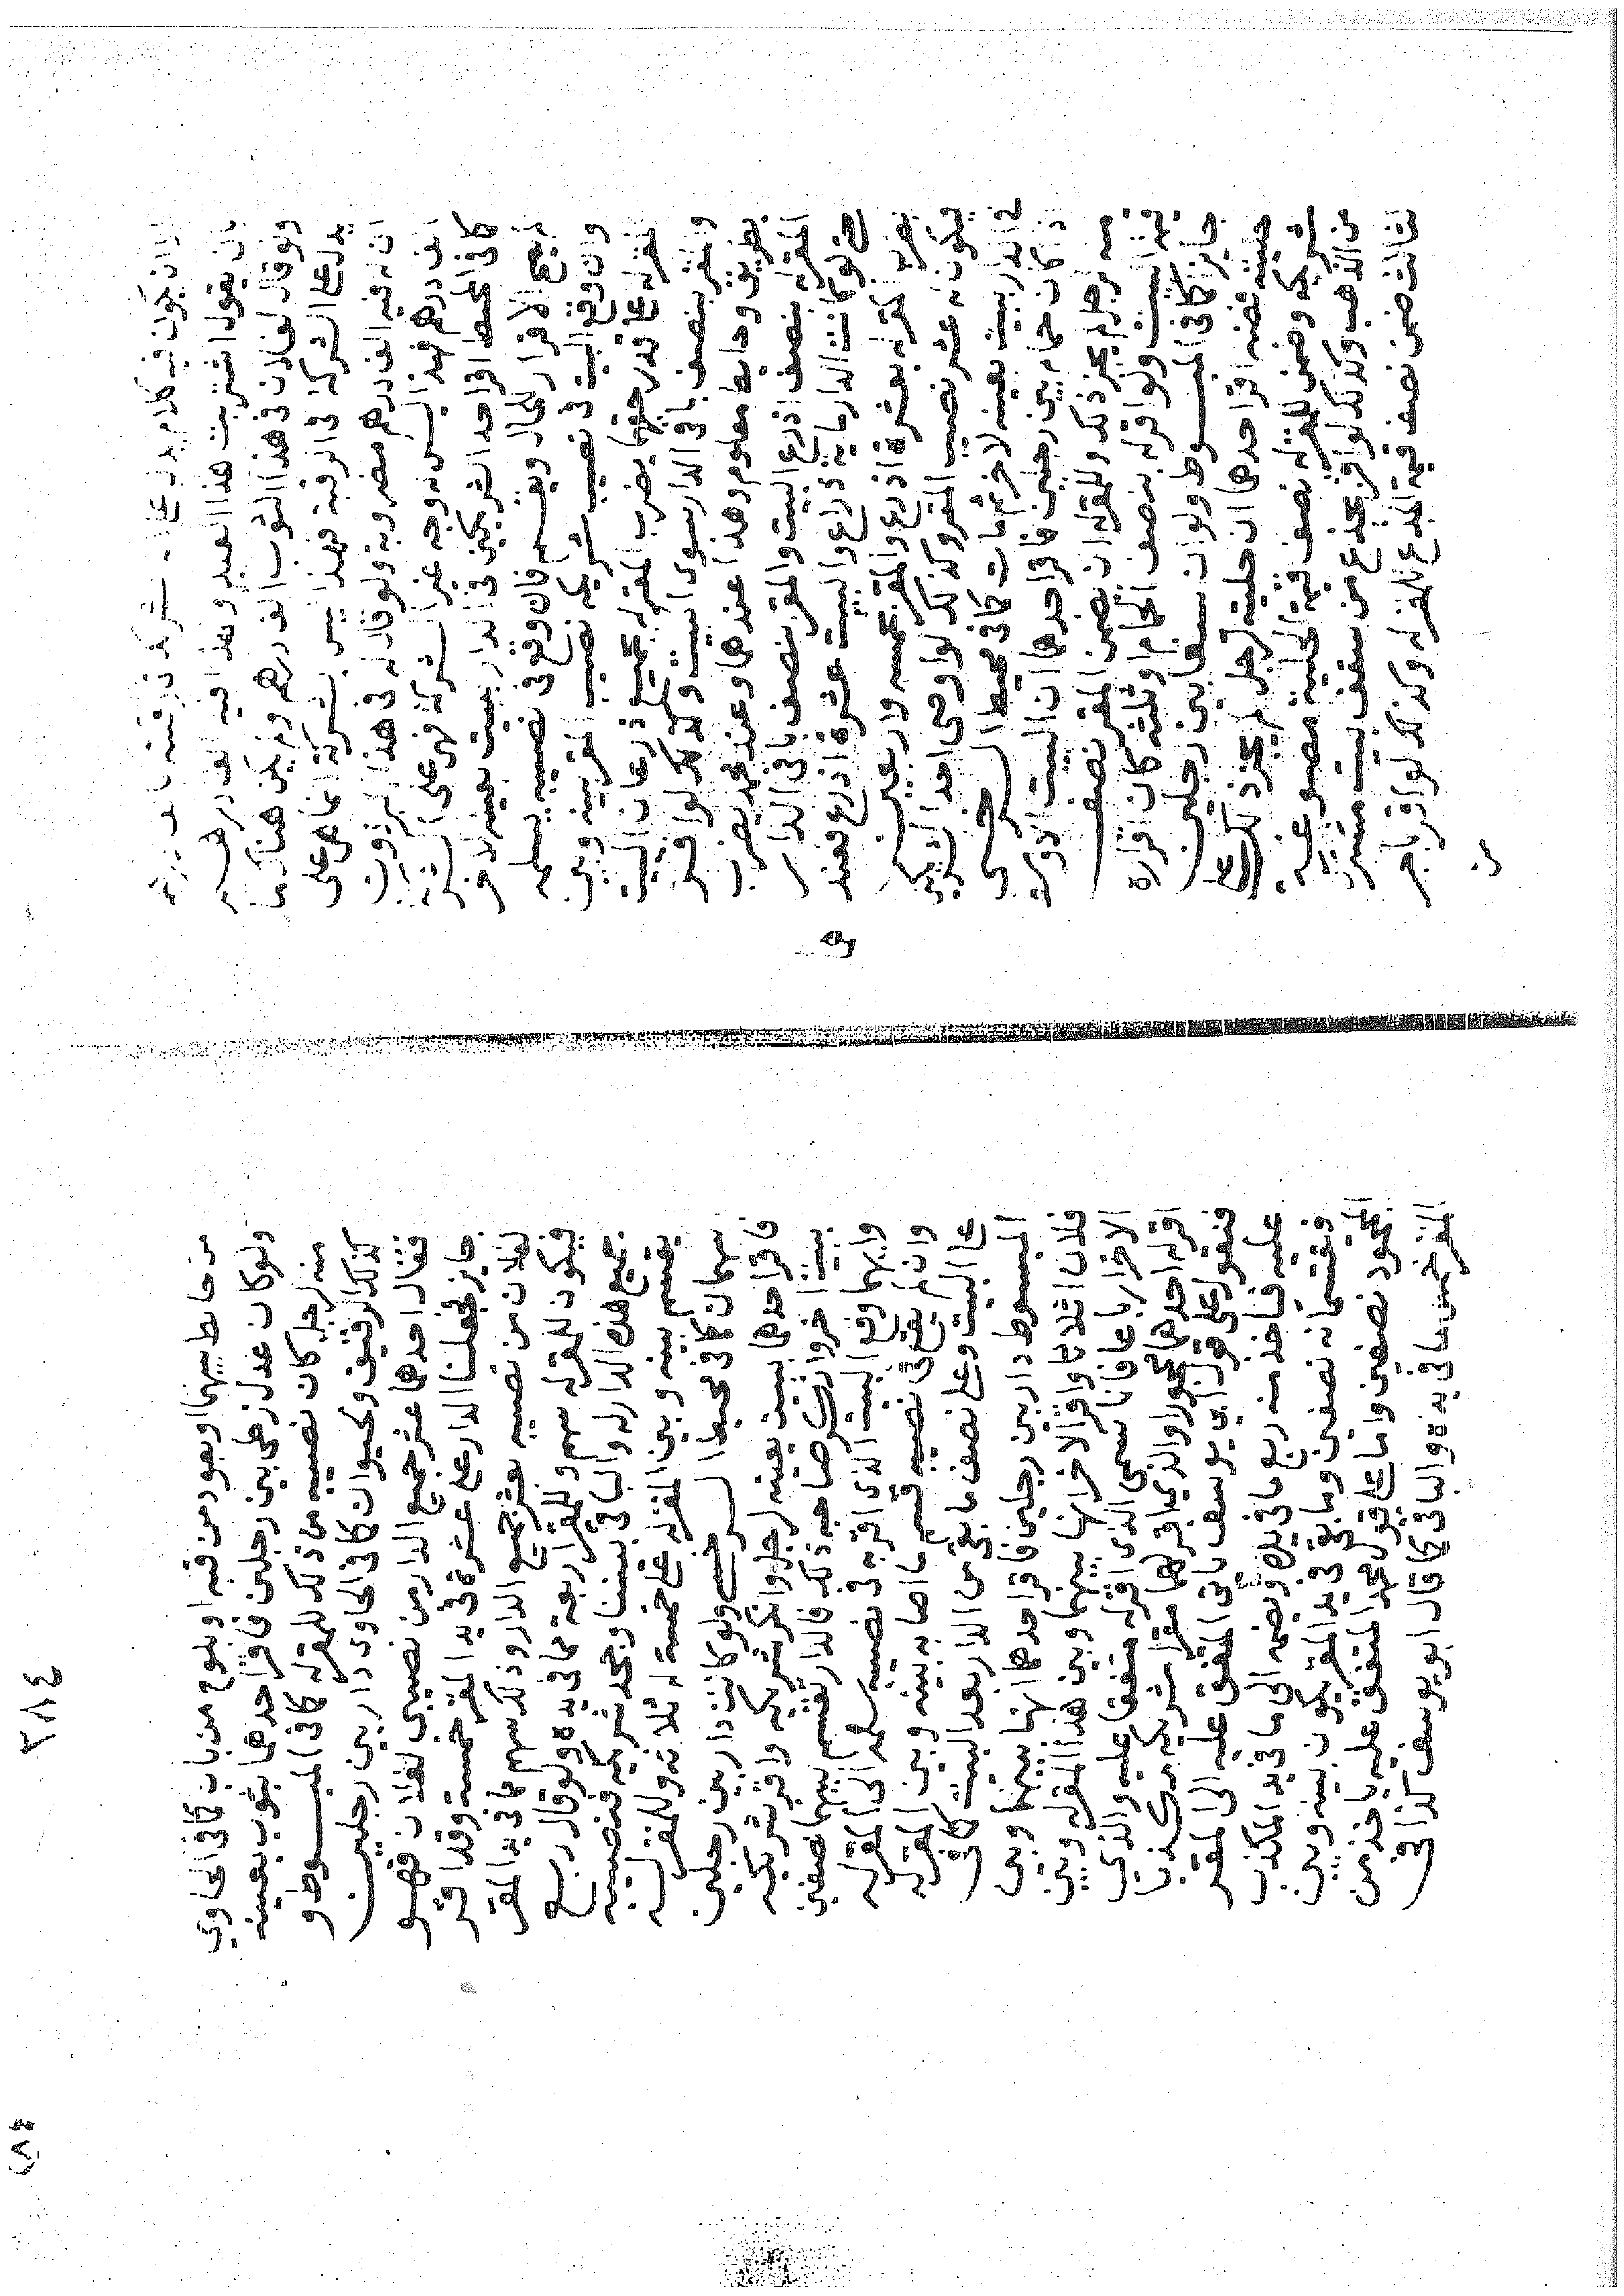 الا ان يكون فيه كلام يدل على شركة في رقبته بالف درهم
بان يقول اشتريت هذا العبد وهذا فيه الف درهم
ولو قال لفلان في هذا الثوب الف درهم ولم يكن هناك
يدل على الشركة في الرقبة فهذا ليس بشركة انما هي على
ان له فيه الف درهم مضروبة ولو قال له في هذا البرذون
الف درهم فهذا ليس له وجه غير الشركة فهي على الشركة
كافي المحيط اقر احد الشريكين في الدار ببيت بعينه لاخر
لم يصح الاقرار للحال ويقسم فان وقع في نصيبه يسلمه
وان وقع البيت في نصيب شريكه نصيب المقر بينه وبين
المقر له على قدر حقهما يضرب المقر له بجميع ذرعان البيت
والمقر بنصف باقي الدار سوى البيت وكذلك لو اقر
بطريق وحايط معلوم وهذا عندهما وعند محمد يضرب
المقر له بنصف اذرع البيت والمقر بنصف باقي الدار
حتى لو كانت الدار ماية ذراع والبيت عشرة اذرع فعند
يضرب المقر له بعشرة اذرع والمقر بخمسة واربعين
فيكون له عشر نصيب المقر وكذلك لو اوصى احد الشريكين
في الدار ببيت بعينه لاخر ثم مات كافي محيط السرخسى
اذا كان حمام بين رجلين فاقر احدهما ان البيت الاوسط
منه لرجل لم يجز ذلك وللمقر له ان يضمن المقر نصف
قيمة البيت ولو اقر له بنصف الحمام او ثلثه كان اقراره
جايز كافي المبسوط ولو ان سيفا بين رجلين
حليته فضة اقر احدهما ان حليته لرجل لم يجز ذلك على
شريكه وضمن للمقر له نصف قيمة الحلية مصوغة
من الذهب وكذلك لو اقر بجذع من سقف بيت مشترك
لثالث ضمن نصف قيمة الجذع للمقر له وكذلك لو اقر باجر
من
٢٨٤
من حايط بينهما او بعود من قبة او بلوح من باب كافي الحاوي
ولو كان عدل زطي بين رجلين فاقر احدهما بثوب بعينه
منه لرجل كان نصيبه من ذلك للمقر له كافي المبسوط و
كذلك الرقيق والحيوان كافي الحاوي دار بين رجلين
فقال احدهما عشر جميع الدار من نصيبي لفلان فهو
جايز فجعلنا الدار على عشرة في يد المقر خمسة وقد اقر
لفلان من نصيبه بعشر جميع الدار وذلك سهم مما في يد المقر
فيكون للمقر له سهم وللمقر اربعة مما في يده ولو قال ربع
جميع هذه الدار له والباقي بيننا وجحد شريكه فنصيبه
يقسم بينه وبين المقر له على خمسة له ثلاثة وللمقر له
سهمان كافي محيط السرخسي ولو كانت دار بين رجلين
فاقر احدهما ببيت بعينه لرجل وانكر شريكه واقر شريكه
ببيت اخر وانكر صاحبه ذلك فالدار تقسم بينهما نصفين
وايهما وقع البيت الذي اقر به في نصيبه سلمه الى المقر له
وان لم يقع في نصيبه قسم ما اصابه بينه وبين المقر له
على البيت وعلى نصف ما بقي من الدار بعد البيت كافي
المبسوط دار بين رجلين فاقر احدهما انها بينهما وبين
فلان اثلاثا واقر الاخر انها بينهما وبين هذا المقر له وبين
الاخر ارباعا فانا نسمي الذي اقر له متفقا عليه والذي
اقر له احدهما مجحودا والذي اقر لهما مقرا شريكه مكذبا
فنقول على قول ابي يوسف ياتي المتفق عليه الى المقر
عليه فياخذ منه ربع ما في يده ويضمه الى ما في يد المكذب
ونقسمانه نصفين وما بقي في يد المقر يكون بينه وبين
المجحود نصفين واما على قول محمد المتفق عليه ياخذ من
المقر خمس ما في يده والباقي كما قال ابو يوسف كذا في